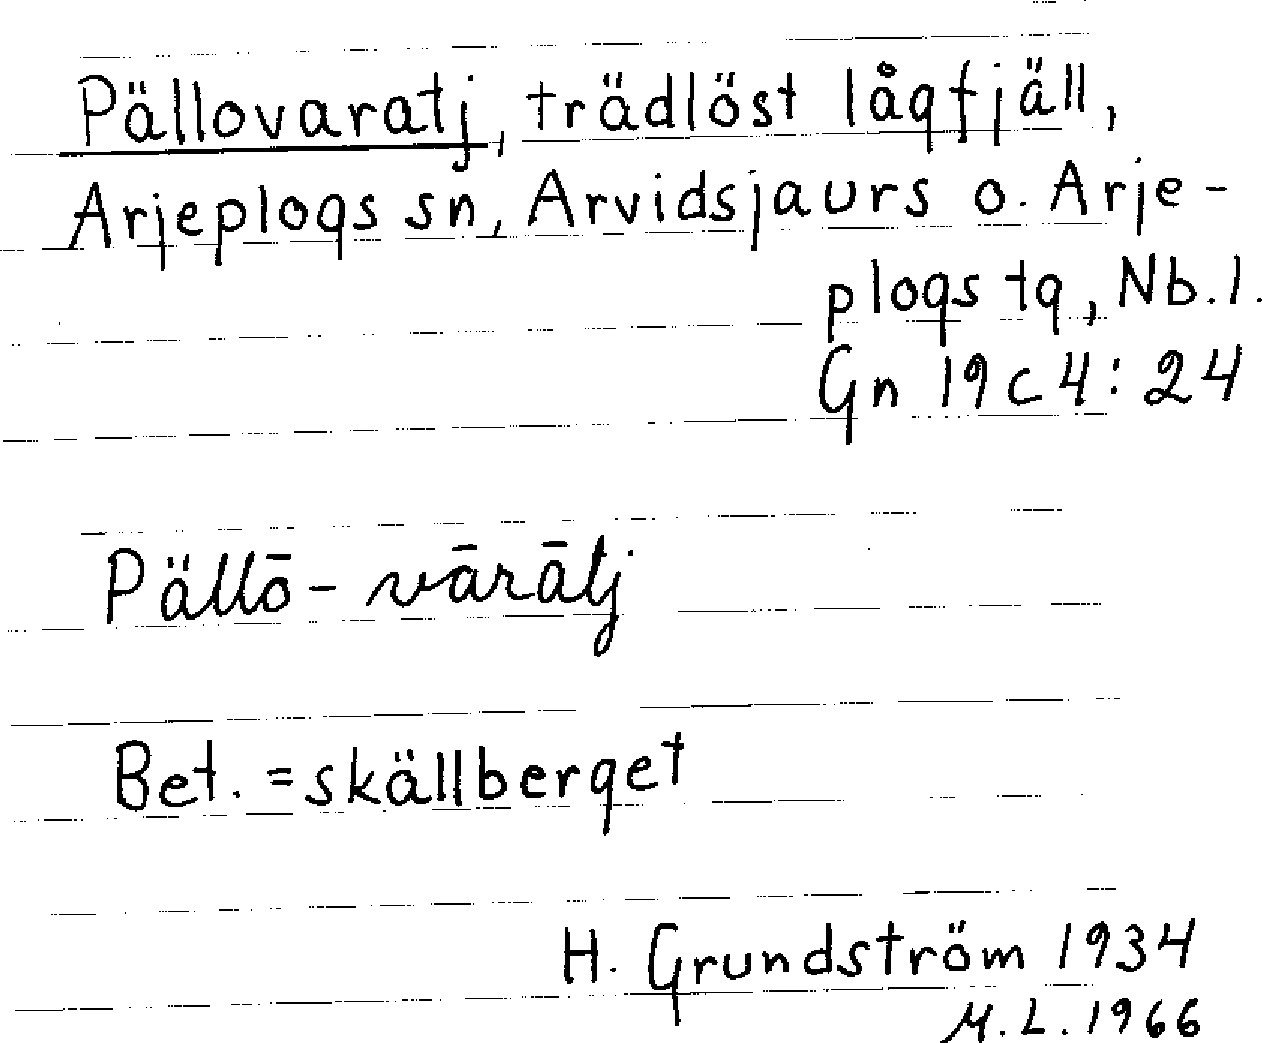 Pällovaratj, trädlöst lågfjäll,
Arjeplogs sn, Arvidsjaurs o. Arje-
plogs tg, Nb.l.
Gn 19c4:24
Pällō-vārātj
Bet. = skällberget
H. Grundström 1934
M.L. 1966